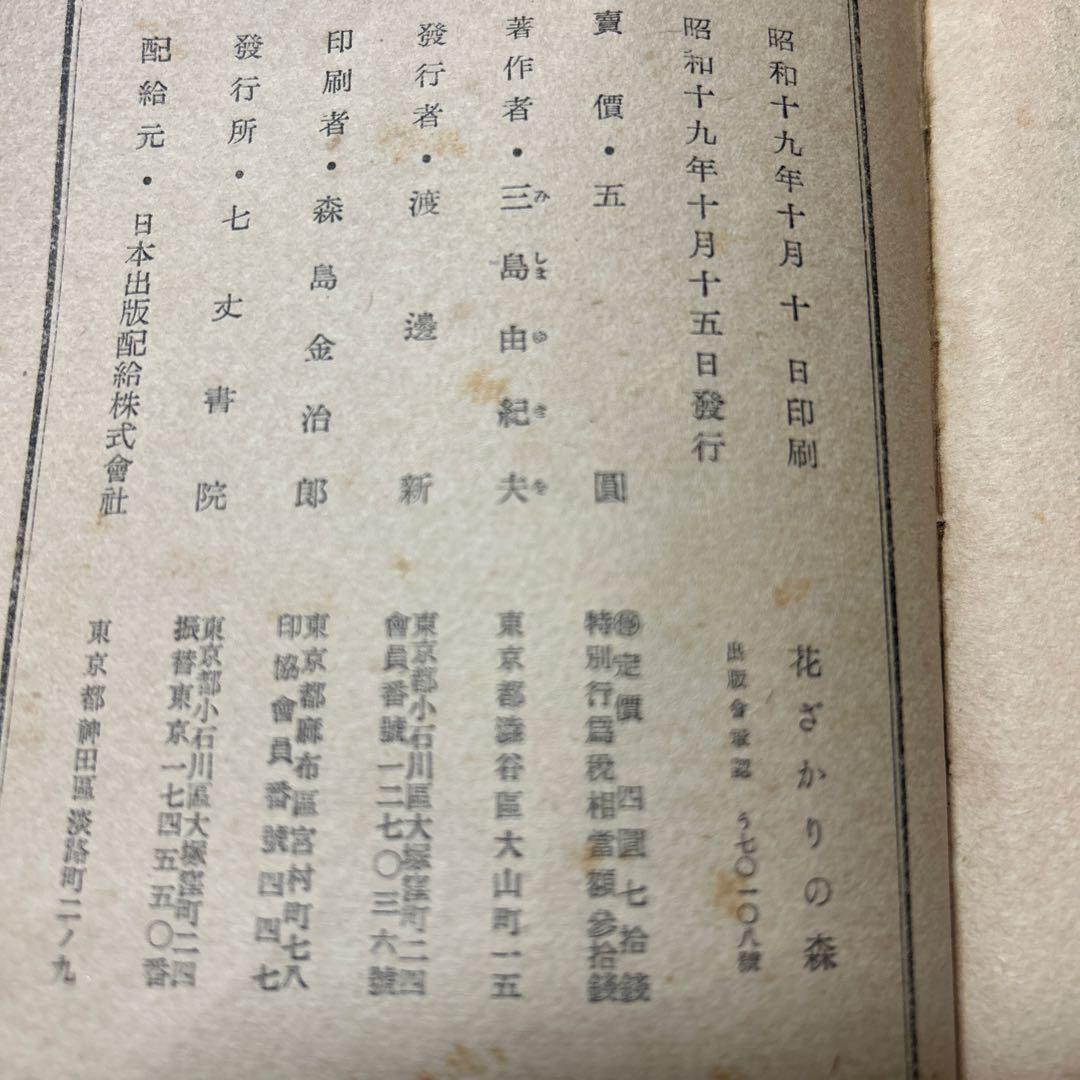 昭和十九年十月十日印刷
昭和十九年十月十五日發行
花ざかりの森
出版會承認 う七〇一〇八號
賣價・五圓
㊕定價 四圓七拾錢
特別行爲稅相當額參拾錢
著作者・三島由紀夫
みしまゆきを
東京都澁谷區大山町一五
發行者・渡邊新
東京都小石川區大塚窪町二四
會員番號一二七〇三六號
印刷者・森島金治郎
東京都麻布區宮村町七八
印協會員番號四四七
發行所・七丈書院
東京都小石川區大塚窪町二四
振替東京一七四五五〇番
配給元・日本出版配給株式會社
東京都神田區淡路町二ノ九